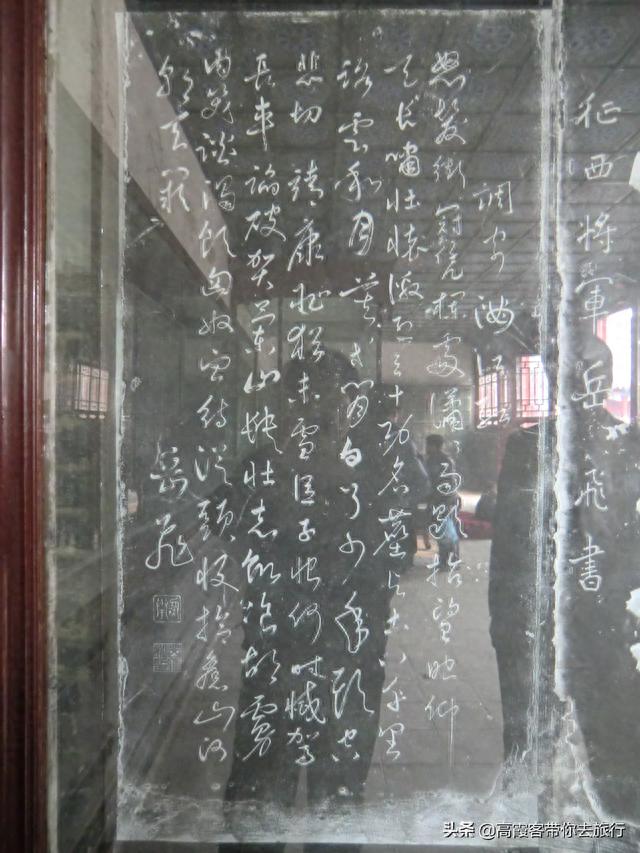 征西將軍岳飛書
調寄滿江紅
怒髮衝冠凭欄處瀟瀟雨歇抬望眼仰
天長嘯壯懷激烈三十功名塵與土八千里
路雲和月莫等閒白了少年頭空
悲切靖康恥猶未雪臣子恨何時滅駕
長車踏破賀蘭山缺壯志飢飡胡虜
肉笑談渴飲匈奴血待從頭收拾舊山河
朝天闕
岳飛
头条 @高霞客带你去旅行